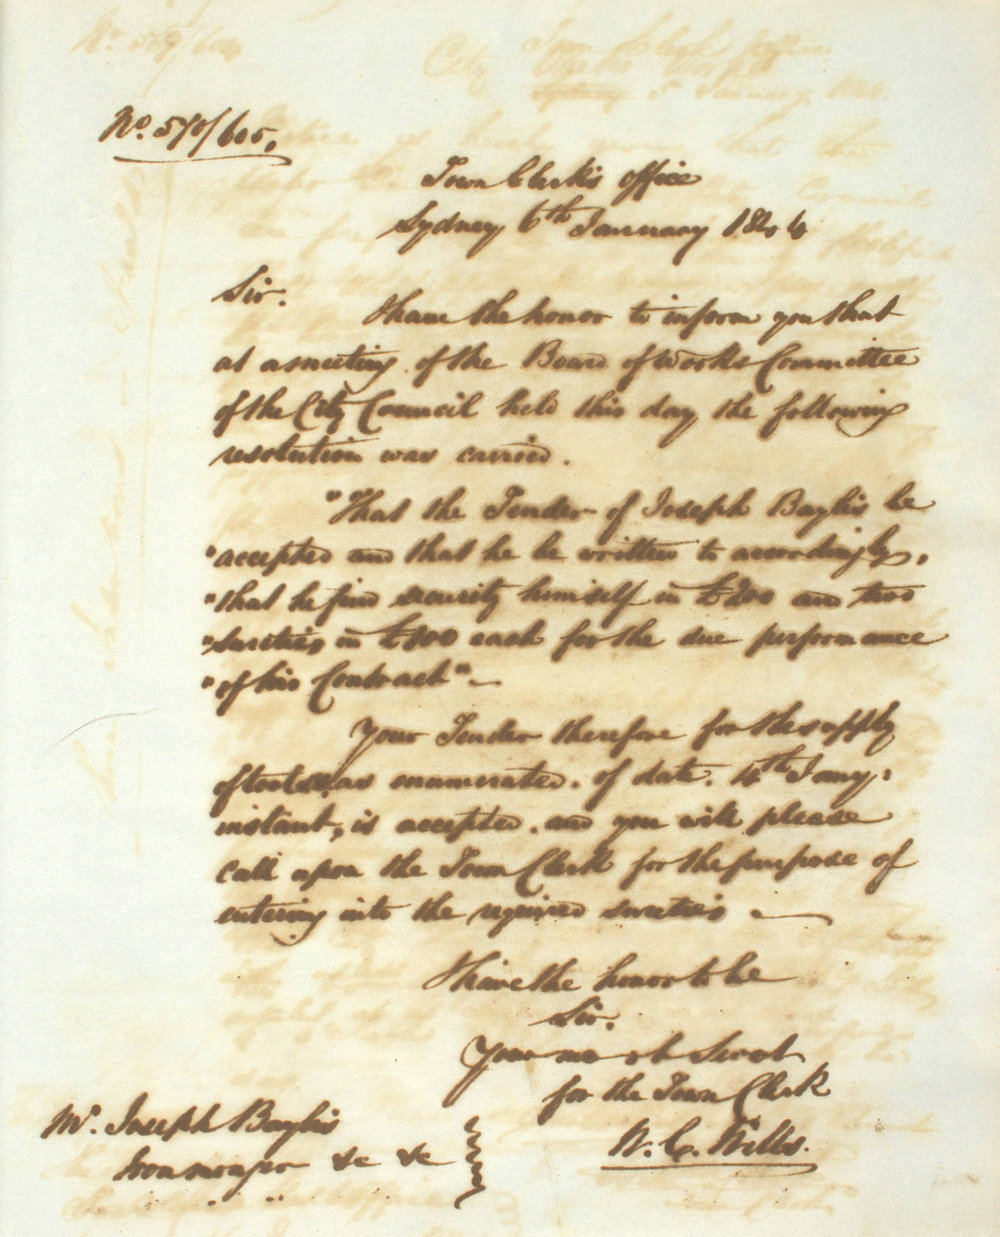 No. 570/605.
Town Clerk's office
Sydney 6th January 1844
Sir.
I have the honor to inform you that
at a meeting of the Board of Works Committee
of the City Council held this day the following
resolution was carried.
"That the Tender of Joseph Baylis be
"accepted and that he be written to accordingly,
"that he find security himself in £200 and two
"sureties in £100 each for the due performance
"of his Contract"
Your Tender therefore for the supply
of tools as enumerated. of date. 4th Jany:
instant, is accepted. and you will please
call upon the Town Clerk for the purpose of
entering into the required sureties
I have the honor to be
Sir.
Your mo ob Servt
for the Town Clerk
W. C. Wills.
Mr. Joseph Baylis
Ironmonger &c &c